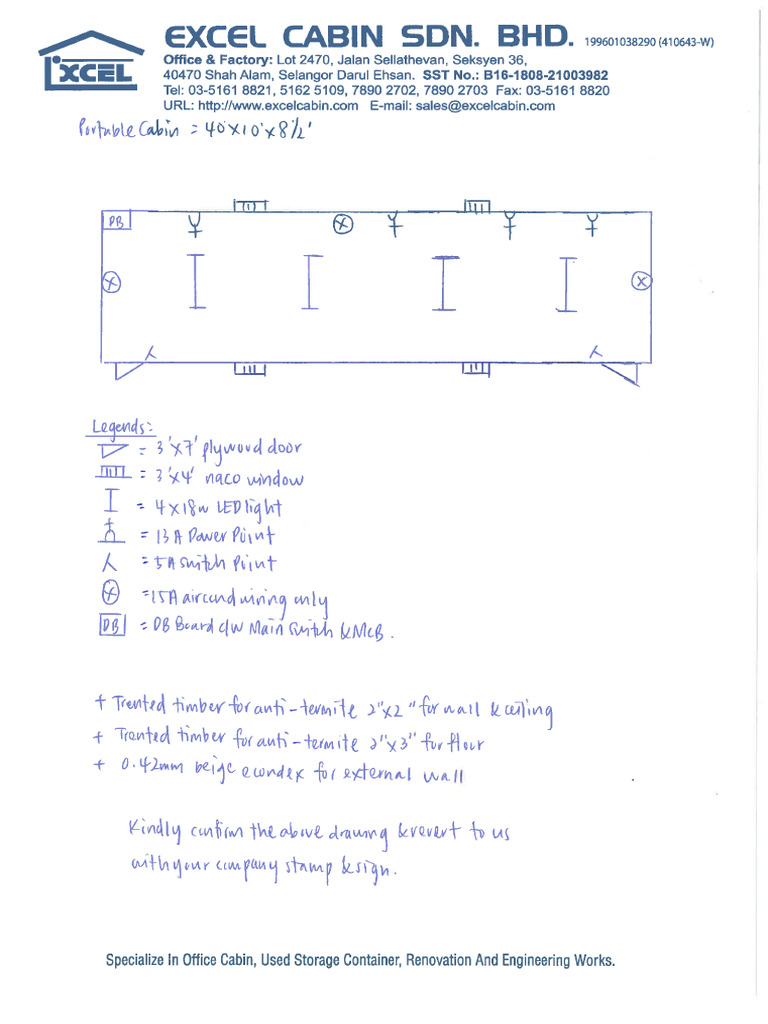 EXCEL
EXCEL CABIN SDN. BHD. 199601038290 (410643-W)
Office & Factory: Lot 2470, Jalan Sellathevan, Seksyen 36,
40470 Shah Alam, Selangor Darul Ehsan. SST No.: B16-1808-21003982
Tel: 03-5161 8821, 5162 5109, 7890 2702, 7890 2703 Fax: 03-5161 8820
URL: http://www.excelcabin.com E-mail: sales@excelcabin.com
Portable Cabin = 40'x10'x8½'
DB
Legends:
= 3'x7' plywood door
= 3'x4' naco window
= 4x18w LED light
= 13A Power Point
= 5A Switch Point
= 15A aircond wiring only
DB = DB Board c/w Main Switch & MCB.
+ Treated timber for anti-termite 2"x2" for wall & ceiling
+ Treated timber for anti-termite 2"x3" for floor
+ 0.42mm beige econdex for external wall
Kindly confirm the above drawing & revert to us
with your company stamp & sign.
Specialize In Office Cabin, Used Storage Container, Renovation And Engineering Works.